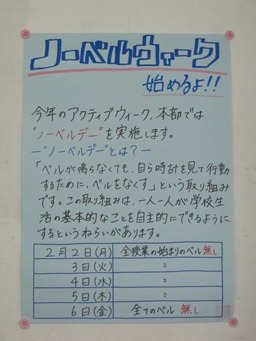 ノーベルウィーク
始めるよ!!
今年のアクティブウィーク、本部では
"ノーベルデー"を実施します。
ー"ノーベルデー"とは?ー
「ベルが鳴らなくても、自ら時計を見て行動
するために、ベルをなくす」という取り組み
です。この取り組みは、一人一人が学校生
活の基本的なことを自主的にできるように
するというねらいがあります。
2月2日(月) 全授業の始まりのベル無し
3日(火) 〃
4日(水) 〃
5日(木) 〃
6日(金) 全てのベル 無し